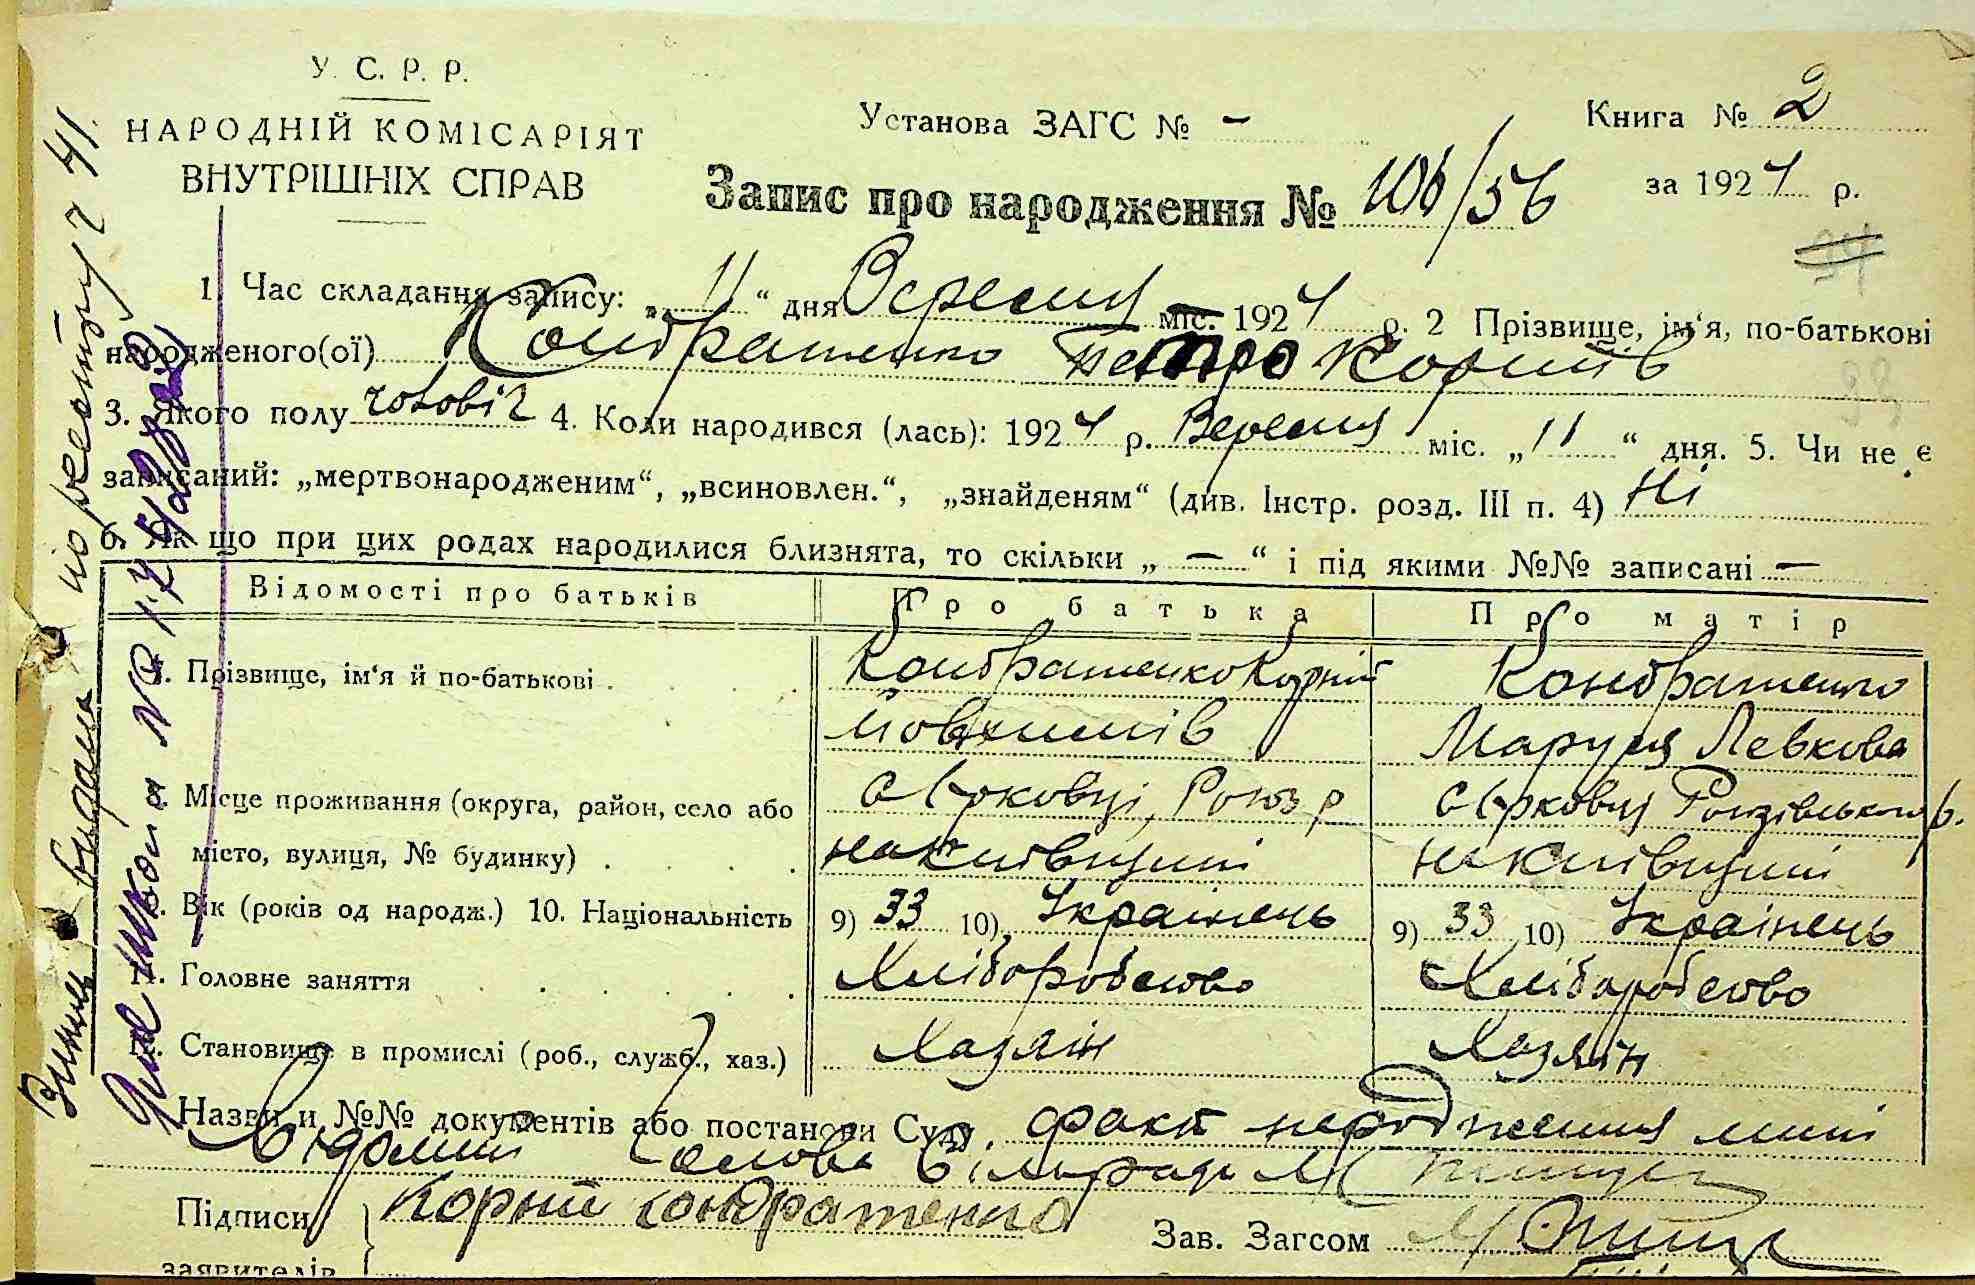 У. С. Р. Р.
НАРОДНІЙ КОМІСАРІЯТ
ВНУТРІШНІХ СПРАВ
Установа ЗАГС № -
Книга № 2
Запис про народження № 106/56
за 1924 р.
94
1 Час складання запису: „ 11 “ дня Вересня міс. 1924 р. 2 Прізвище, ім‘я, по-батькові
народженого(ої) Кондратенко Петро Корніїв
3. Якого полу чоловіч 4. Коли народився (лась): 1924 р. Вересня міс. „ 11 “ дня. 5. Чи не є
записаний: „мертвонародженим“, „всиновлен.“, „знайденям“ (див. Інстр. розд. III п. 4) Ні
6. Як що при цих родах народилися близнята, то скільки „ — “ і під якими №№ записані —
Відомості про батьків Про батька Про матір
7. Прізвище, ім‘я й по-батькові Кондратенко Корній Кондратенко
Маруся Левкова
8. Місце проживання (округа, район, село або
місто, вулиця, № будинку) на Київщині на Київщині
9. Вік (років од народж.) 10. Національність 9) 33 10) Українець 9) 33 10) Українець
11. Головне заняття Хліборобство Хліборобство
12. Становище в промислі (роб., служб., хаз.) Хазяїн Хазяїн
Назви и №№ документів або постанови Суду факт народження мині
відомий Голова Сільради
Підписи Корній Кондратенко Зав. Загсом
заявителів